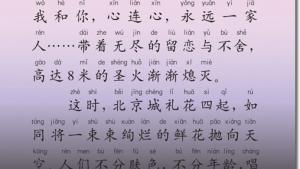 wǒ hé nǐ xīn lián xīn yǒng yuǎn yì jiā
我和你，心连心，永远一家
rén dài zhe wú jìn de liú liàn yǔ bù shě
人……带着无尽的留恋与不舍，
gāo dá mǐ de shèng huǒ jiàn jiàn xī miè
高达8米的圣火渐渐熄灭。
zhè shí běi jīng chéng lǐ huā sì qǐ rú
这时，北京城礼花四起，如
tóng jiāng yí shù shù xuàn làn de xiān huā pāo xiàng tiān
同将一束束绚烂的鲜花抛向天
kōng rén men bù fēn fū sè bù fēn nián líng chàng
空，人们不分肤色，不分年龄，唱